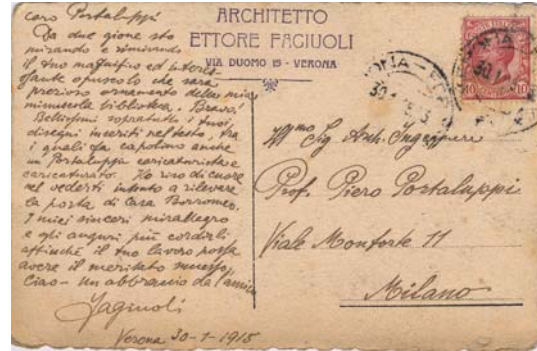 caro Portaluppi
Da due giorni sto
mirando e rimirando
il tuo magnifico ed interes-
sante opuscolo che sarà
prezioso ornamento della mia
minuscola biblioteca. Bravo!
Bellissimi sopratutto i tuoi
disegni inseriti nel testo, tra
i quali fa capolino anche
un Portaluppi caricaturista e
caricaturato. Ho riso di cuore
nel vederti intento a rilevare
la porta di Casa Borromeo.
I miei sinceri mirallegro
e gli auguri più cordiali
affinché il tuo lavoro possa
avere il meritato successo.
Ciao - un abbraccio da l'amico
Fagiuoli
Verona 30-1-1915
ARCHITETTO
ETTORE FAGIUOLI
VIA DUOMO 15 - VERONA
10 10
Ill mo Sig Arch. Ingegnere
Prof. Piero Portaluppi
Viale Monforte 11
Milano